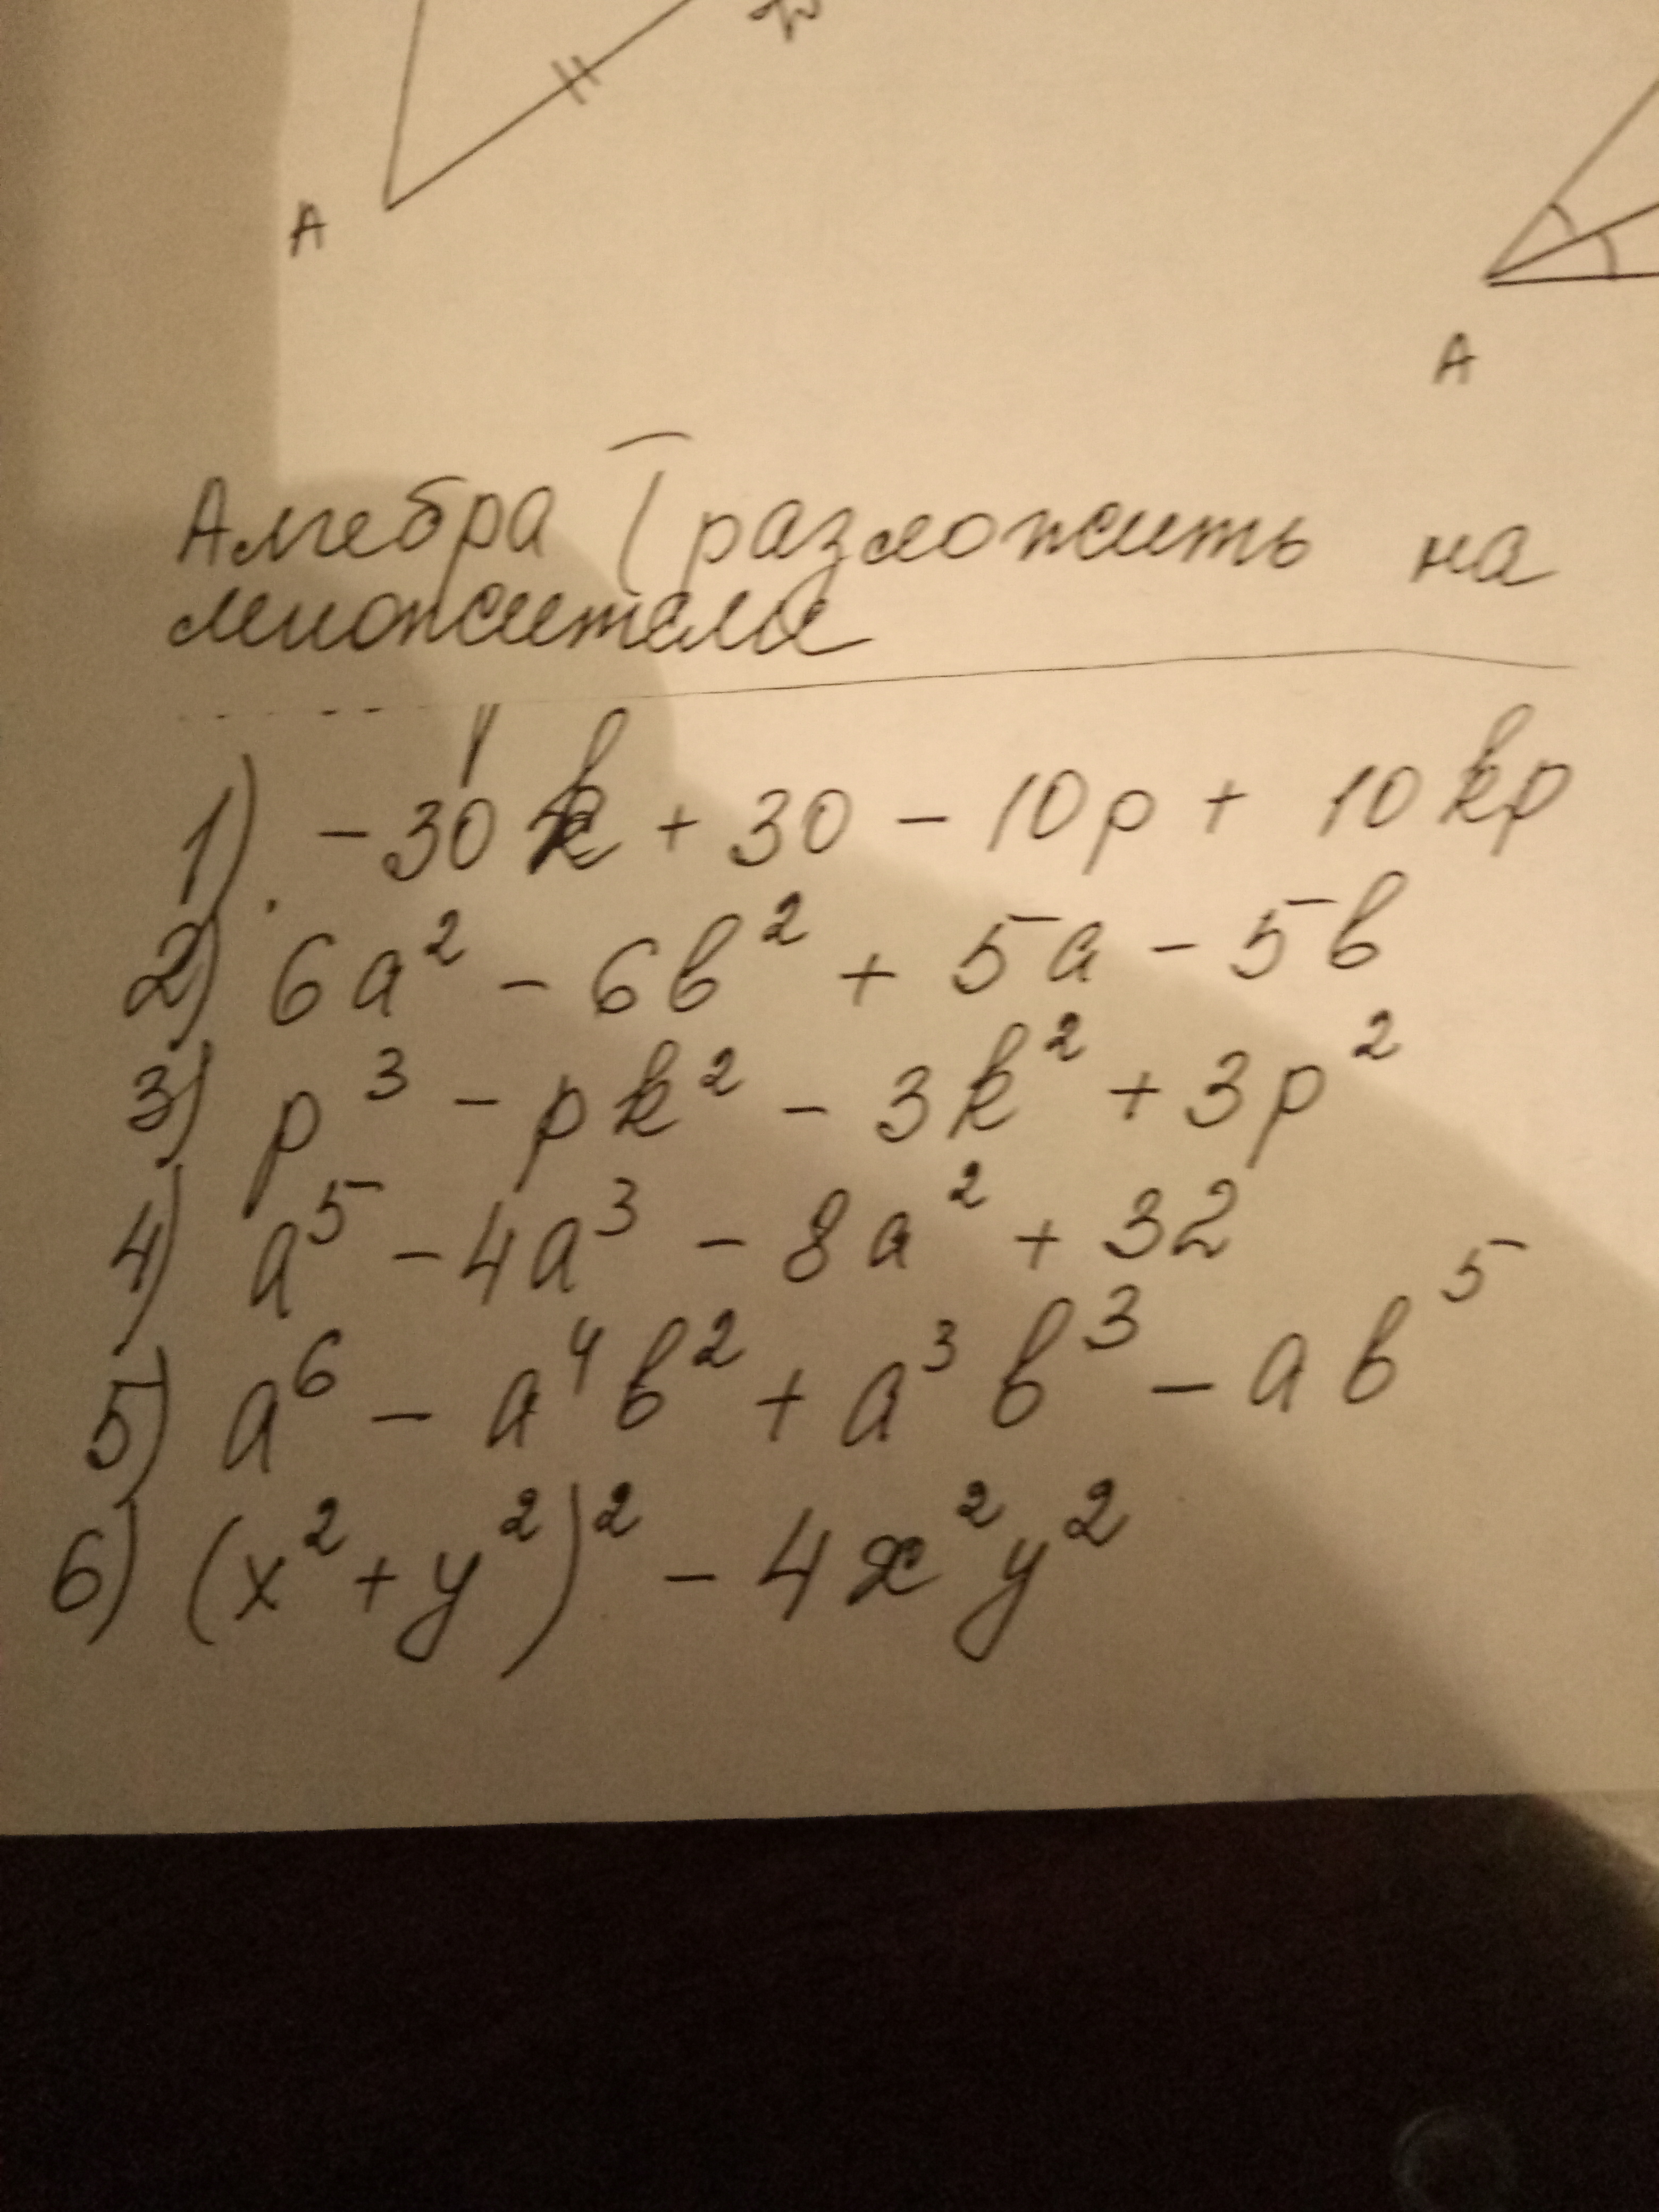 A
A
Алгебра (разложить на
множители
1) - 30k + 30 - 10p + 10kp
2) 6a² - 6b² + 5a - 5b
3) p³ - pk² - 3k² + 3p²
4) a⁵ - 4a³ - 8a² + 32
5) a⁶ - a⁴b² + a³b³ - ab⁵
6) (x² + y²)² - 4x²y²